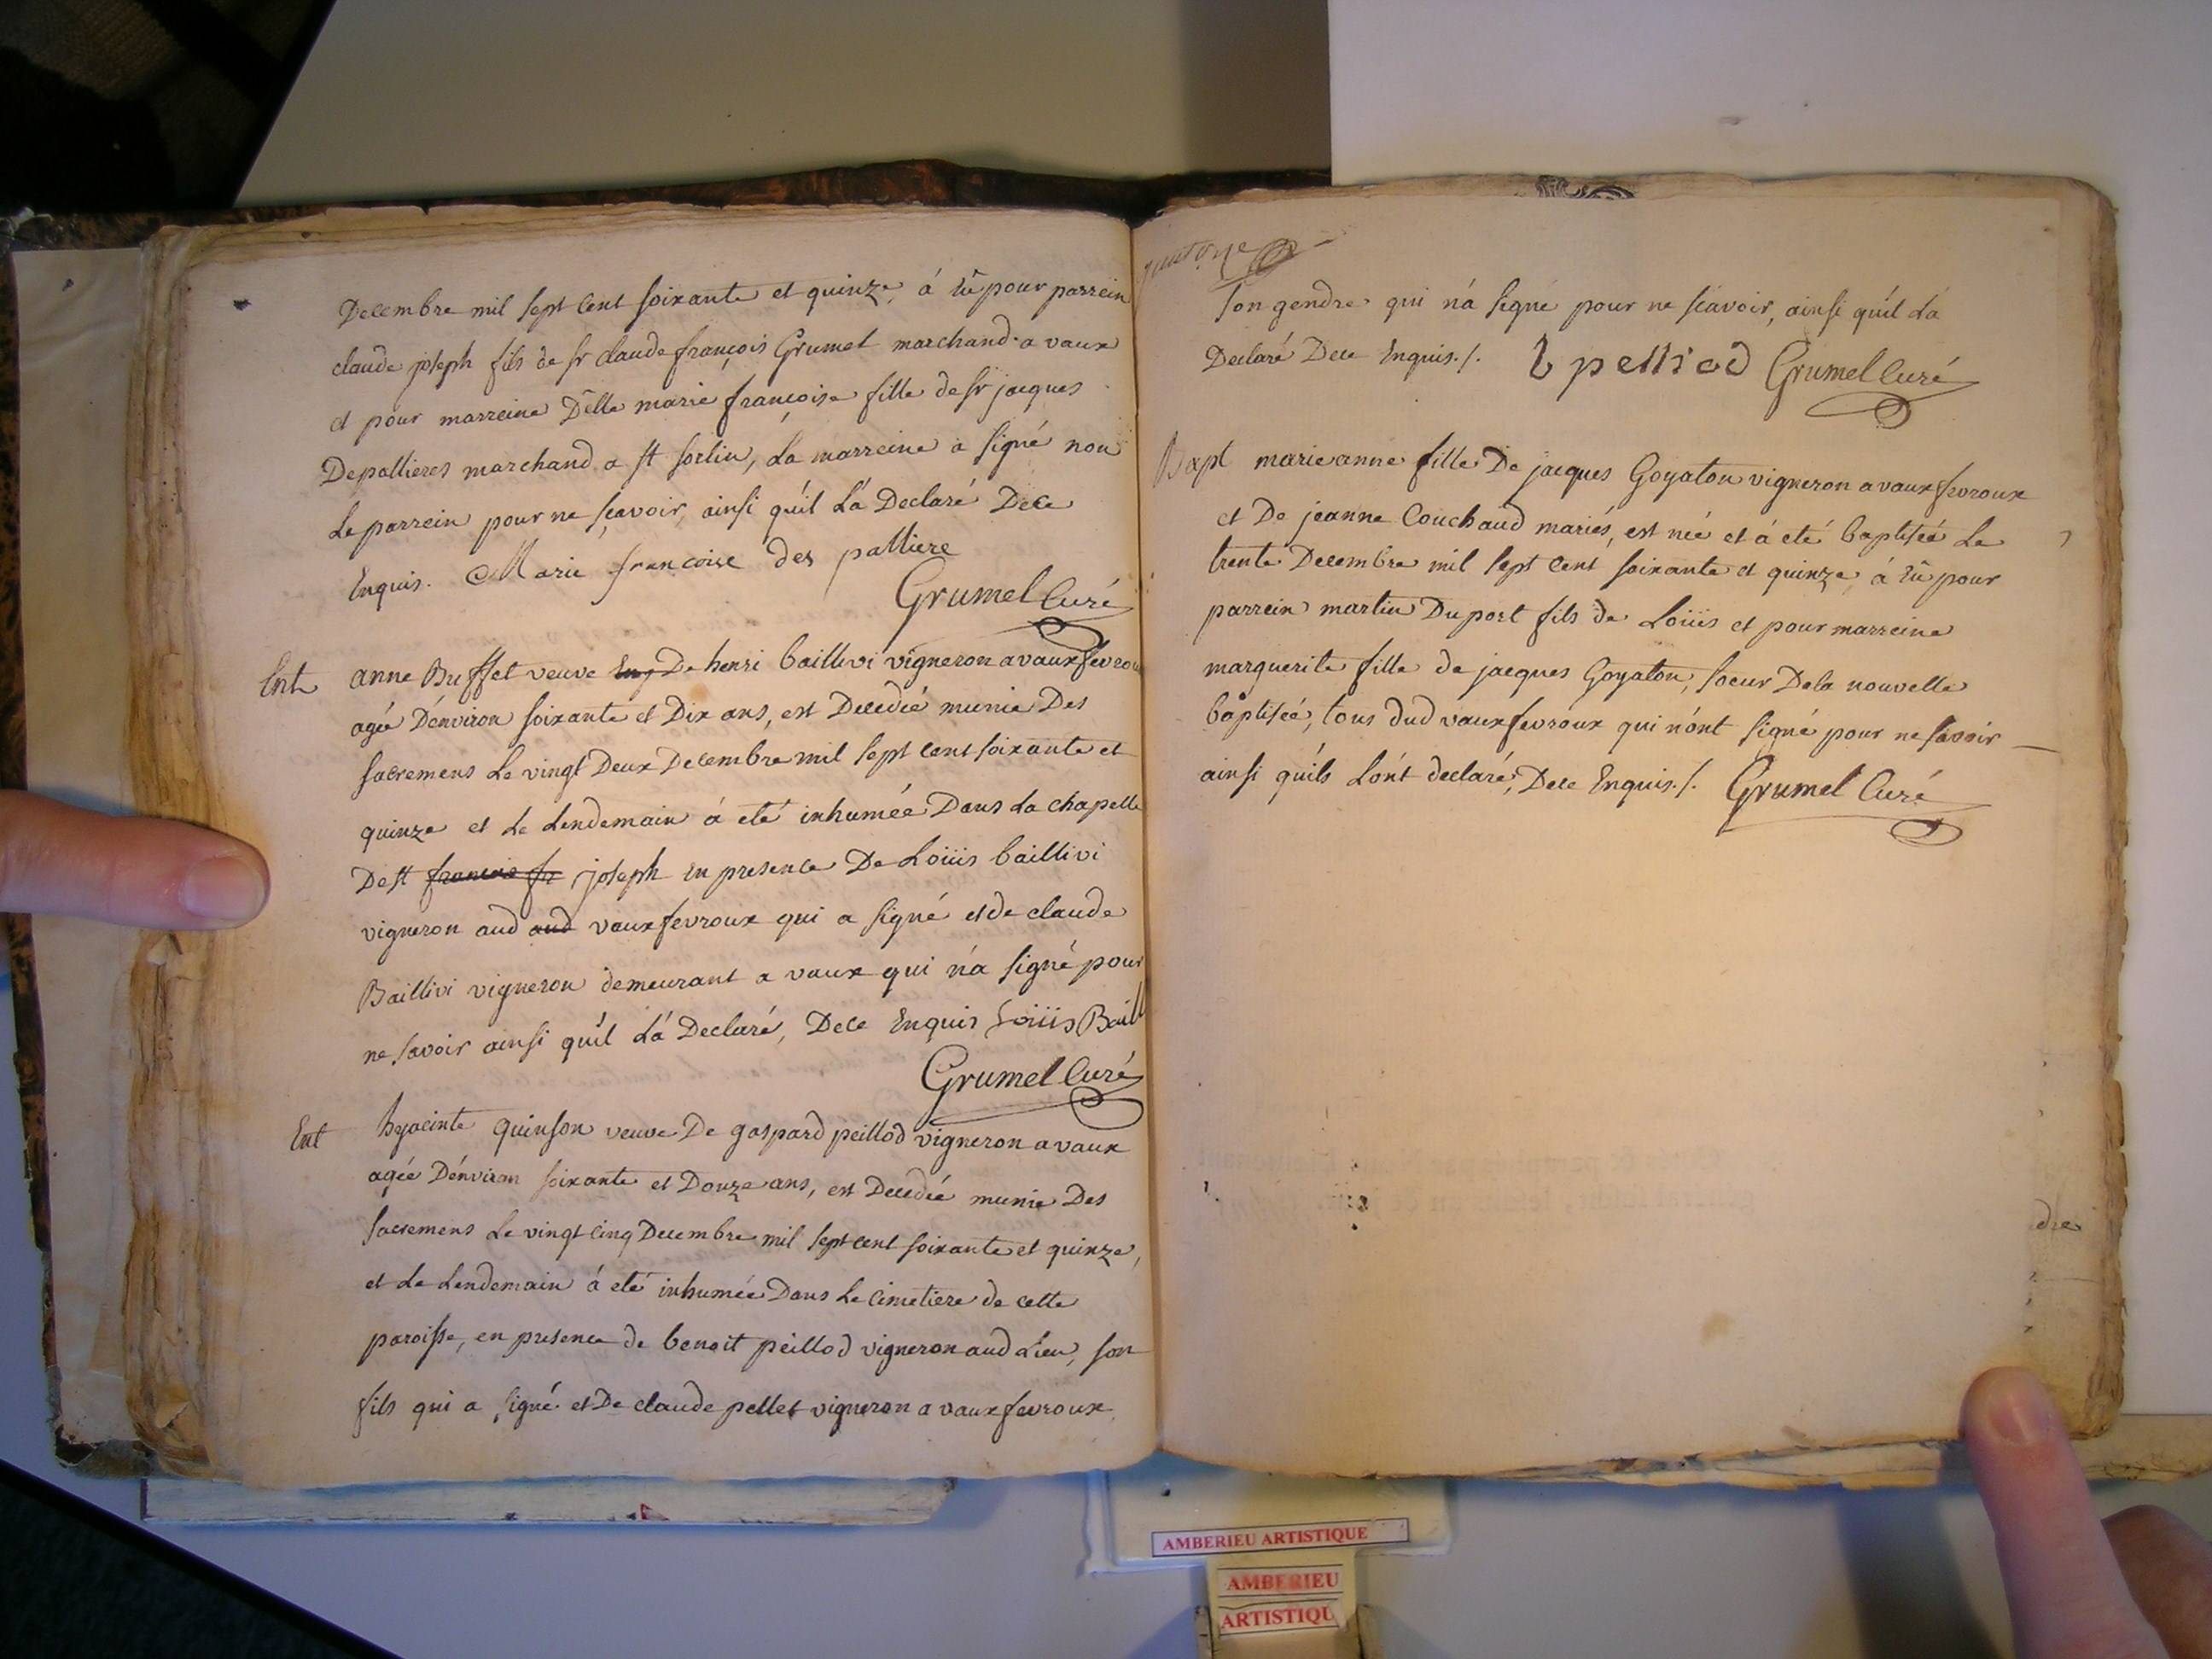 Decembre mil sept cent soixante et quinze, á eû pour parrein
claude joseph fils de sr claude françois Grumet marchand a vaux
et pour marreine Delle marie françoise fille de sr jacques
Depallieres marchand a st sorlin, La marreine a signé non
Le parrein pour ne sçavoir, ainsi qu'il L'a Declaré Dece
Enquis. Marie francoise des palliere
Grumel Curé
Ent anne Buffet veuve De henri baillivi vigneron a vauxfevroux
agée D'environ soixante et Dix ans, est Decedée munie Des
sacremens Le vingt Deux Decembre mil sept cent soixante et
quinze et Le Lendemain á eté inhumée Dans La chapelle
De st francois fr joseph en presence De Loüis baillivi
vigneron aud aud vauxfevroux qui a signé et de claude
Baillivi vigneron demeurant a vaux qui n'a signé pour
ne savoir ainsi qu'il L'a Declaré, Dece Enquis Loüis Baill
Grumel Curé
Ent hyacinte quinson veuve De gaspard peillod vigneron a vaux
agée D'environ soixante et Douze ans, est Decedée munie Des
sacremens Le vingt cinq Decembre mil sept cent soixante et quinze,
et Le Lendemain á eté inhumée Dans Le cimetiere de cette
paroisse, en presence de benoit peillod vigneron aud Lieu, son
fils qui a signé et De claude pellet vigneron a vauxfevroux
son gendre qui n'a signé pour ne scavoir, ainsi qu'il L'a
Declaré Dece Enquis./. b pelliod Grumel Curé
Bapt marie anne fille De jacques Goyaton vigneron a vauxfevroux
et De jeanne Couchaud mariés, est née et á eté baptisée Le
trente Decembre mil sept cent soixante et quinze, á eû pour
parrein martin Duport fils de Loüis et pour marreine
marguerite fille de jacques Goyaton, soeur De la nouvelle
baptisée, tous dud vauxfevroux qui n'ont signé pour ne savoir
ainsi qu'ils L'ont declaré, Dece Enquis./. Grumel Curé
dre
AMBERIEU ARTISTIQUE
AMBERIEU
ARTISTIQU